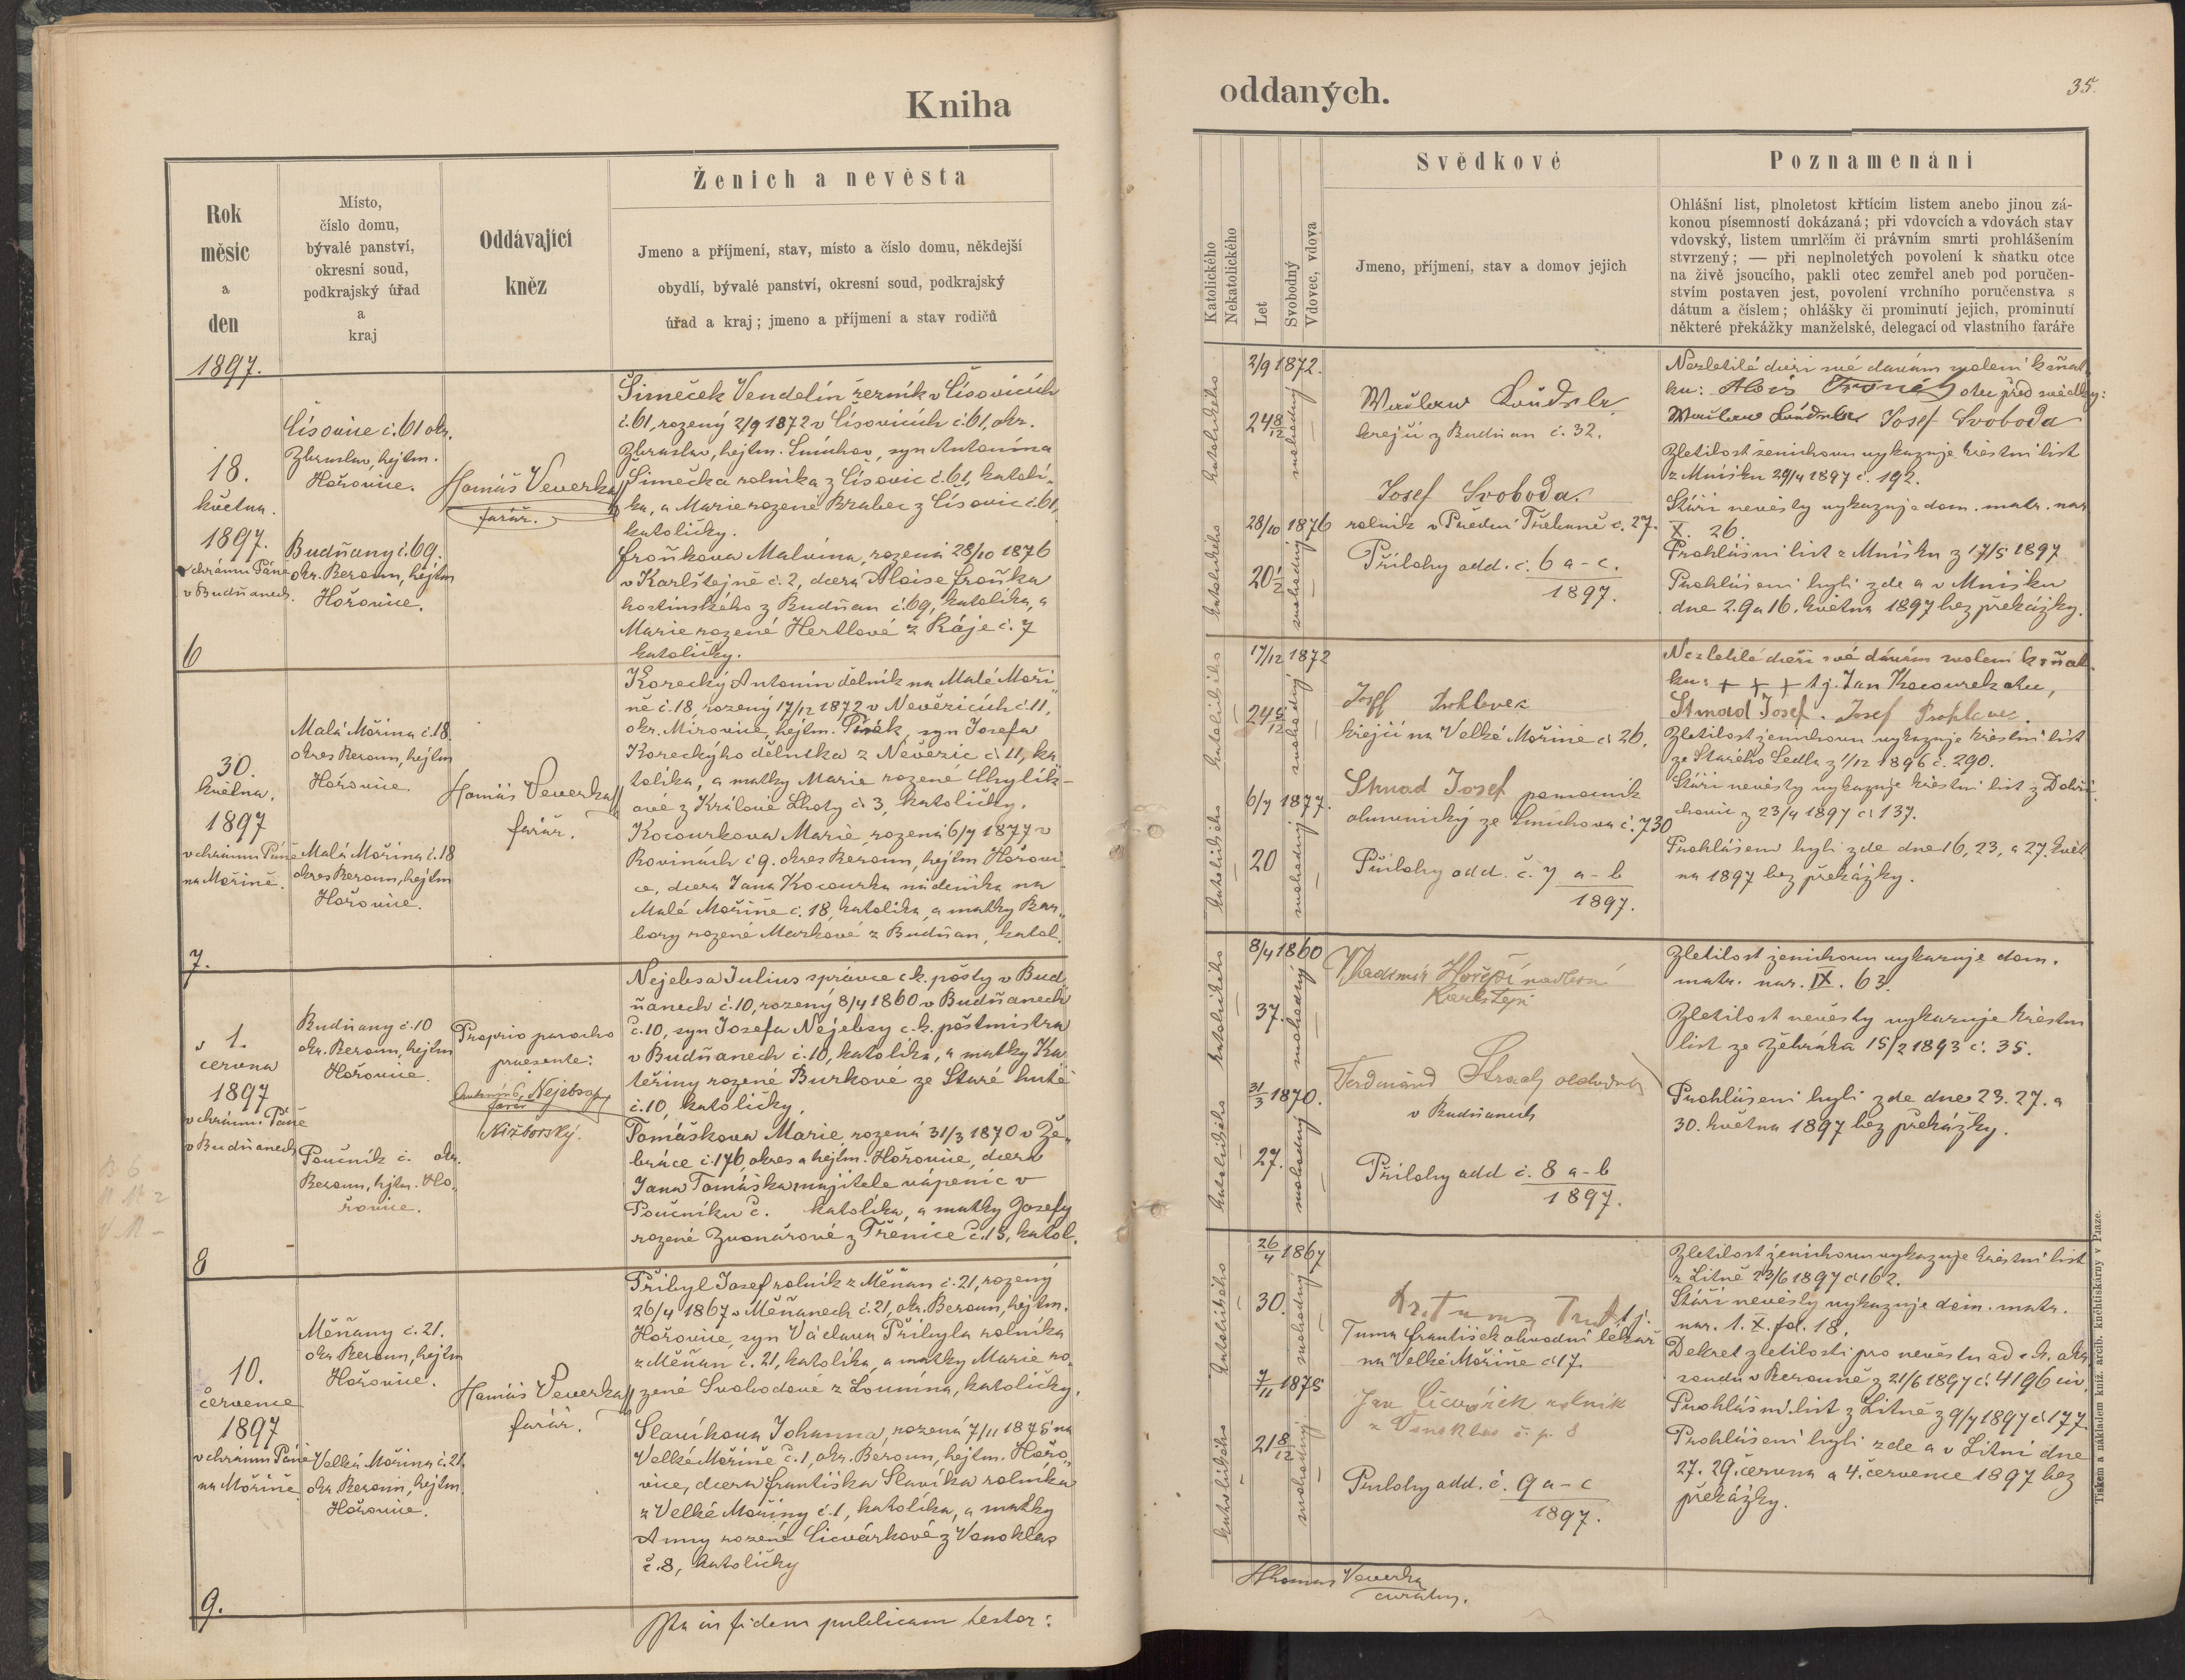 Kniha
oddaných.
35.
Rok
měsíc
a
den
Místo,
číslo domu,
bývalé panství,
okresní soud,
podkrajský úřad
a
kraj
Oddávající
kněz
Ženich a nevěsta
Jmeno a příjmení, stav, místo a číslo domu, někdejší
obydlí, bývalé panství, okresní soud, podkrajský
úřad a kraj; jmeno a příjmení a stav rodičů
Katolického
Nekatolického
Let
Svobodný
Vdovec, vdova
Svědkové
Jmeno, příjmení, stav a domov jejich
Poznamenání
Ohlášní list, plnoletost křtícím listem anebo jinou zá-
konou písemností dokázaná; při vdovcích a vdovách stav
vdovský, listem umrlčím či právním smrti prohlášením
stvrzený; — při neplnoletých povolení k sňatku otce
na živě jsoucího, pakli otec zemřel aneb pod poručen-
stvím postaven jest, povolení vrchního poručenstva s
dátum a číslem; ohlášky či prominutí jejich, prominutí
některé překážky manželské, delegací od vlastního faráře
1897.
18.
května.
1897.
v chrámu Páně
v Budňanech.
6
Čísovice č. 61 okr.
Zbraslav, hejtm.
Hořovice.
Budňany č. 69.
okr. Beroun, hejtm
Hořovice.
Tomáš Veverka
farář.
Šimeček Vendelín řezník v Čísovicích
č. 61, rozený 2/9 1872 v Čísovicích č. 61, okr.
Zbraslav, hejtm. Smíchov, syn Antonína
Šimečka rolníka z Čísovic č. 61, katolí-
ka, a Marie rozené Brabec z Čísovic č. 61,
katoličky.
Froňkova Malvína, rozená 28/10 1876
v Karlštejně č. 2, dcera Aloise Froňka
hostinského z Budňan č. 69, katolíka, a
Marie rozené Hertlové z Ráje č. 7
katoličky.
katolického
2/9 1872.
24 8/12
svobodný
katolického
28/10 1876
20 1/2
svobodný
krejčí z Budňan č. 32.
Josef Svoboda.
rolník v Přední Třebani č. 27.
Přílohy add. č. 6 a-c.
1897.
Nezletilé dceři mé dávám svolení k sňat-
ku: Alois Froněk otec před svědky:
Josef Svoboda
Zletilost ženichovu vykazuje křestní list
z Mníšku 29/4 1897 č. 192.
Stáří nevěsty vykazuje dom. matr. nar.
X. 26.
Prohlášní list z Mníšku z 17/5 1897
Prohlášeni byli zde a v Mníšku
dne 2. 9 a 16. května 1897 bez překážky.
30.
května.
1897
v chrámu Páně
na Mořině.
7.
Malá Mořina č. 18.
okres Beroun, hejtm
Hořovice.
Malá Mořina č. 18
okres Beroun, hejtm
Hořovice.
Tomáš Veverka
farář.
Korecký Antonín dělník na Malé Moři-
ně č. 18, rozený 17/12 1872 v Nevězicích č. 11,
okr. Mirovice, hejtm. Písek, syn Josefa
Koreckýho dělníka z Nevězic č. 11, ka-
tolíka, a matky Marie rozené Chylík-
ové z Králové Lhoty č. 3, katoličky.
Kocourkova Marie, rozená 6/7 1877 v
Rovinách č. 9. okres Beroun, hejtm Hořovi-
ce, dcera Jana Kocourka nádeníka na
Malé Mořině č. 18, katolíka, a matky Bar-
bory rozené Markové z Budňan, katol.
katolického
17/12 1872
24 5/12
svobodný
katolického
6/7 1877.
20
svobodný
Josef Prohlavec
krejčí na Velké Mořině č. 26.
Strnad Josef pomocník
ze Smíchova č. 730
Přílohy add. č. 7 a-b
1897.
Nezletilé dceři své dávám svolení k sňat-
ku: + + + tj. Jan Kocourek otec,
Strnad Josef. Josef Prohlavec.
Zletilost ženichovu vykazuje křestní list
ze Starého Sedla z 1/12 1896 č. 290.
Stáří nevěsty vykazuje křestní list z Dobři-
chovic z 23/4 1897 č. 137.
Prohlášeni byli zde dne 16, 23, a 27. květ-
na 1897 bez překážky.
1.
června
1897
v chrámu Páně
v Budňanech
8
Budňany č. 10
okr. Beroun, hejtm
Hořovice.
Poučník č. okr.
Beroun, hejtm. Ho-
řovice.
Proprio parocho
praesente:
Nejebsa
farář
Nižborský.
Nejebsa Julius správce c. k. pošty v Bud-
ňanech č. 10, rozený 8/4 1860 v Budňanech
č. 10, syn Josefa Nejebsy c. k. poštmistra
v Budňanech č. 10, katolíka, a matky Ka-
teřiny rozené Burkové ze Staré hutě
č. 10, katoličky.
Tomáškova Marie, rozená 31/3 1870 v Že-
bráce č. 176, okres a hejtm. Hořovice, dcera
Jana Tomáška majitele vápenic v
Poučníku č. katolíka, a matky Josefy
rozené Zvonařové z Třenice č. 15, katol.
katolického
8/4 1860
37.
svobodný
katolického
31/3 1870.
27.
svobodný
Vladimír Hořejší nadlesní
Karlštejn
Ferdinand
v Budňanech
Přílohy add č. 8 a-b
1897.
Zletilost ženichovu vykazuje dom.
matr. nar. IX. 63.
Zletilost nevěsty vykazuje křestní
list ze Žebráka 15/2 1893 č. 35.
Prohlášeni byli zde dne 23. 27. a
30. května 1897 bez překážky.
10.
července
1897
v chrámu Páně
na Mořině
9.
Měňany č. 21.
okr. Beroun, hejtm
Hořovice.
Velká Mořina č. 21.
okr. Beroun, hejtm
Hořovice.
Tomáš Veverka
farář.
Přibyl Josef rolník z Měňan č. 21, rozený
26/4 1867 v Měňanech č. 21, okr. Beroun, hejtm.
Hořovice, syn Václava Přibyla rolníka
z Měňan č. 21, katolíka, a matky Marie ro-
zené Svobodové z Lounína, katoličky.
Slavíkova Johanna, rozená 7/11 1875 na
Velké Mořině č. 1, okr. Beroun, hejtm. Hořo-
vice, dcera Františka Slavíka rolníka
z Velké Mořiny č. 1, katolíka, a matky
Anny rozené Cicvárkové z Vonoklas
č. 8, katoličky
katolického
26/4 1867
30.
svobodný
katolického
7/11 1875
21 8/12
svobodný
tj.
Tuma František obvodní lékař
na Velké Mořině č. 17.
Jan Cicvárek rolník
z Vonoklas č. p. 8
Přílohy add. č. 9 a-c
1897.
Zletilost ženichovu vykazuje křestní list
z Litně 23/6 1897 č. 162.
Stáří nevěsty vykazuje dom. matr.
nar. 1. X. fol. 18.
Dekret zletilosti pro nevěstu od c. k. okr.
soudu v Berouně z 21/6 1897 č. 4196 civ.
Prohlášní list z Litně z 9/7 1897 č. 177.
Prohlášeni byli zde a v Litni dne
27. 29. června a 4. července 1897 bez
překážky.
Ita in fidem publicam testor:
Thomas Veverka
curatus.
Tiskem a nákladem kníž. arcib. knihtiskárny v Praze.